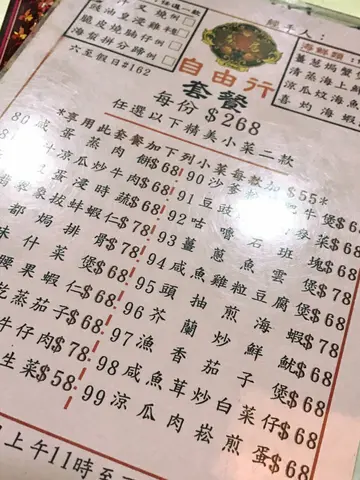 任選一款
豉油皇浸雞
脆皮燒腩仔例
海蜇拼分蹄例
六至假日$162
經手人:
海鮮類:
薑蔥焗蟹
清蒸海上鮮
涼瓜炆海
喜灼海蝦
自由行
套餐
每份$268
任選以下精美小菜二款
*享用此套餐加下列小菜每款加$55*
80 蛋蒸肉餅$68
涼瓜炒牛肉$68
蛋浸時蔬$68
象拔蚌蝦仁$78
都焗排骨$78
什菜煲$68
腰果蝦仁$68
乾蒸茄子$68
牛仔肉$78
生菜$58
90 沙爹 牛煲$68
91 豆豉 菜$68
92 咕嚕石斑塊$68
93 薑蔥魚雲煲$78
94 咸魚雞粒豆腐煲$68
95 頭抽煎海蝦$78
96 芥蘭炒鮮魷$68
97 漁香茄子煲$68
98 咸魚茸炒白菜仔$68
99 涼瓜肉崧煎蛋$68
上午11時至